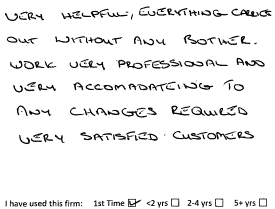 VERY HELPFUL, EVERYTHING CARRIED
OUT WITHOUT ANY BOTHER.
WORK VERY PROFESSIONAL AND
VERY ACCOMADATEING TO
ANY CHANGES REQUIRED
VERY SATISFIED CUSTOMERS
I have used this firm: 1st Time ☑ <2 yrs ☐ 2-4 yrs ☐ 5+ yrs ☐